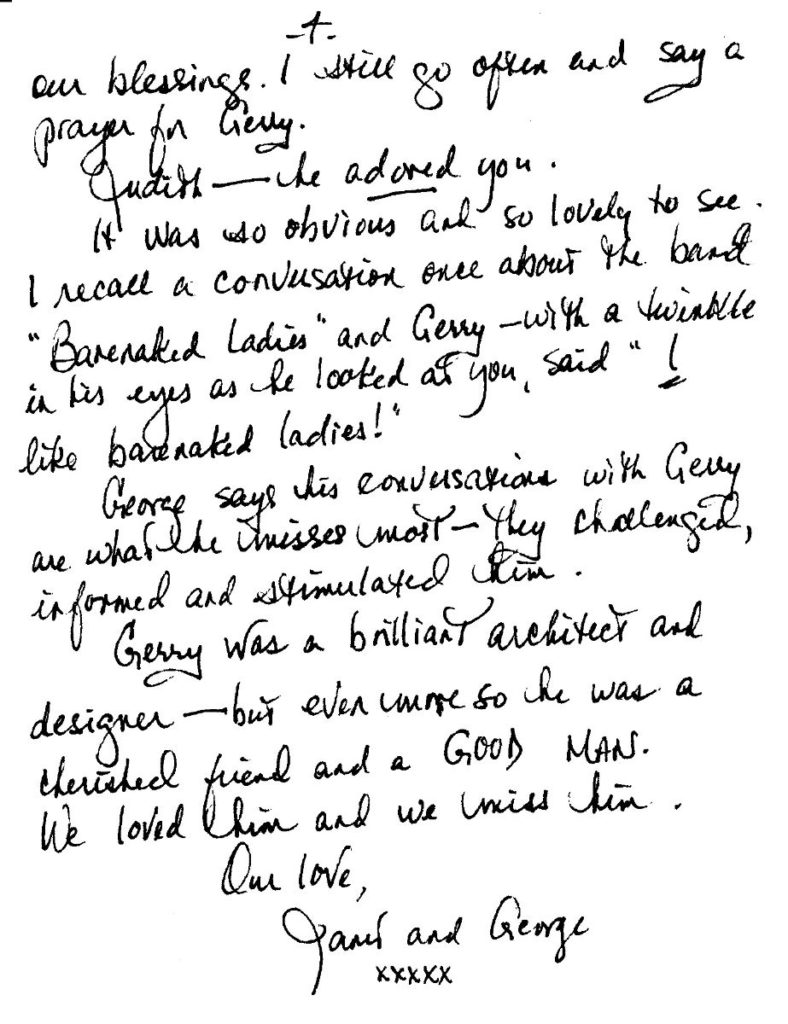 -4-
our blessings. I still go often and say a
prayer for Gerry.
Judith — he adored you.
It was so obvious and so lovely to see.
I recall a conversation once about the band
"Barenaked Ladies" and Gerry — with a twinkle
in his eyes as he looked at you, said "I
like barenaked ladies!"
George says his conversations with Gerry
are what he misses most — they challenged,
informed and stimulated him.
Gerry was a brilliant architect and
designer — but even more so he was a
cherished friend and a GOOD MAN.
We loved him and we miss him.
Our love,
Janet and George
xxxxx